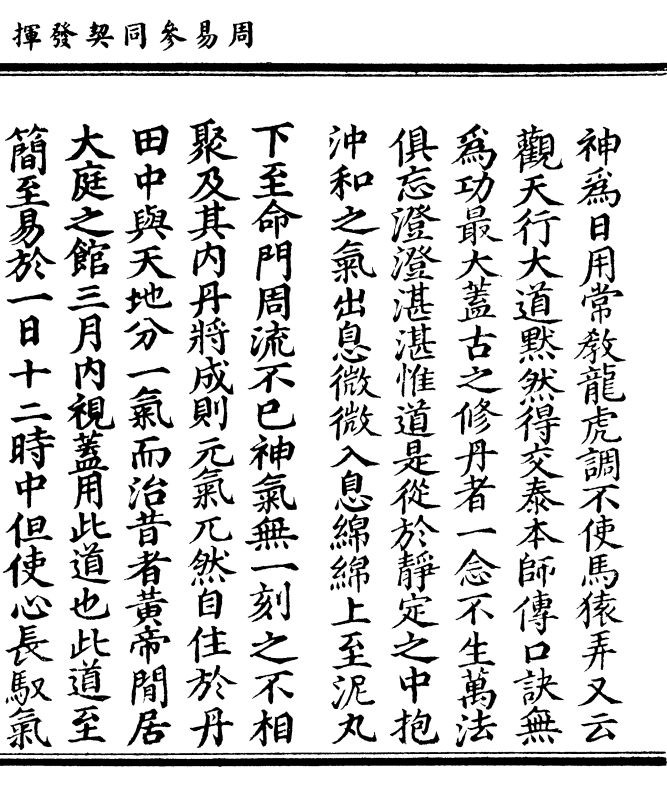 周易參同契發揮
神爲日用常敎龍虎調不使馬猿弄又云
觀天行大道默然得交泰本師傳口訣無
爲功最大蓋古之修丹者一念不生萬法
俱忘澄澄湛湛惟道是從於靜定之中抱
沖和之氣出息微微入息綿綿上至泥丸
下至命門周流不已神氣無一刻之不相
聚及其內丹將成則元氣兀然自住於丹
田中與天地分一氣而治昔者黃帝閒居
大庭之館三月內視蓋用此道也此道至
簡至易於一日十二時中但使心長馭氣